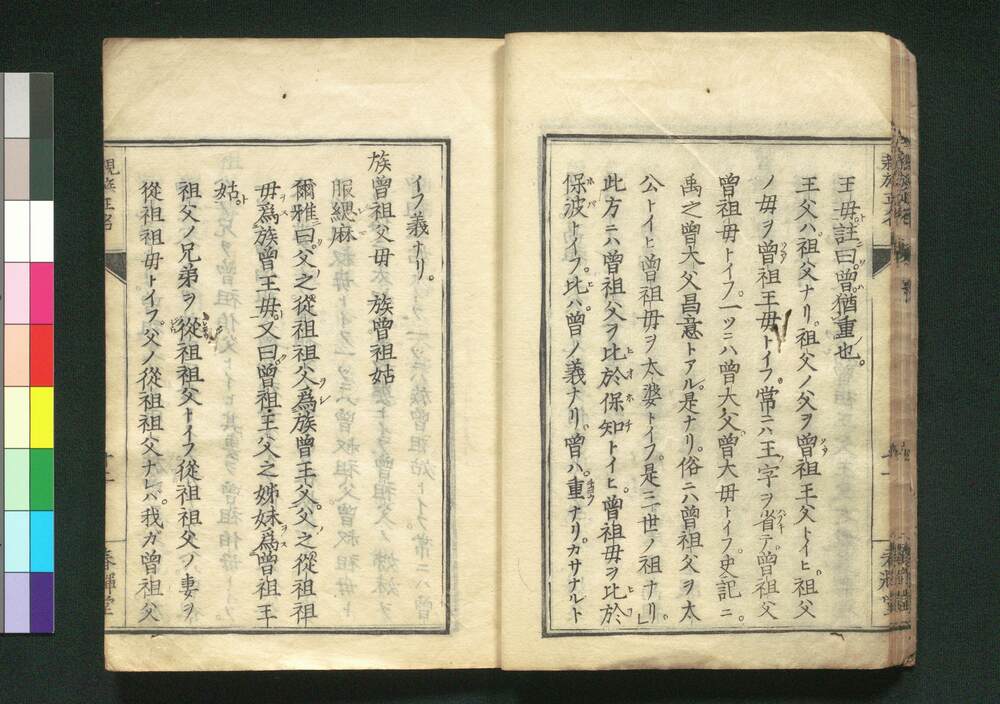 王母註曰曽猶重也。
王父ハ祖父ナリ。祖父ノ父ヲ曽祖王父トイヒ。祖父
ノ母ヲ曽祖王母トイフ。常ニハ王字ヲ省テ曽祖父
曽祖母トイフ。一ツニハ曽大父曽大母トイフ。史記ニ。
禹之曽大父昌意トアル。是ナリ。俗ニハ曽祖父ヲ太
公トイヒ曽祖母ヲ太婆トイフ。是三世ノ祖ナリ」
此方ニハ曽祖父ヲ比於保知トイヒ。曽祖母ヲ比於
保波トイフ。比ハ曽ノ義ナリ。曽ハ。重ナリ。カサナルト
イフ義ナリ。
族曽祖父母 族曽祖姑
服緦麻
爾雅曰。父之從祖祖父爲族曽王父。父之從祖祖
母爲族曽王母。又曰曽祖王父之姊妹爲曽祖王
姑。
祖父ノ兄弟ヲ從祖祖父トイフ從祖祖父ノ妻ヲ
從祖祖母トイフ。父ノ從祖祖父ナレバ。我ガ曽祖父
春輝堂